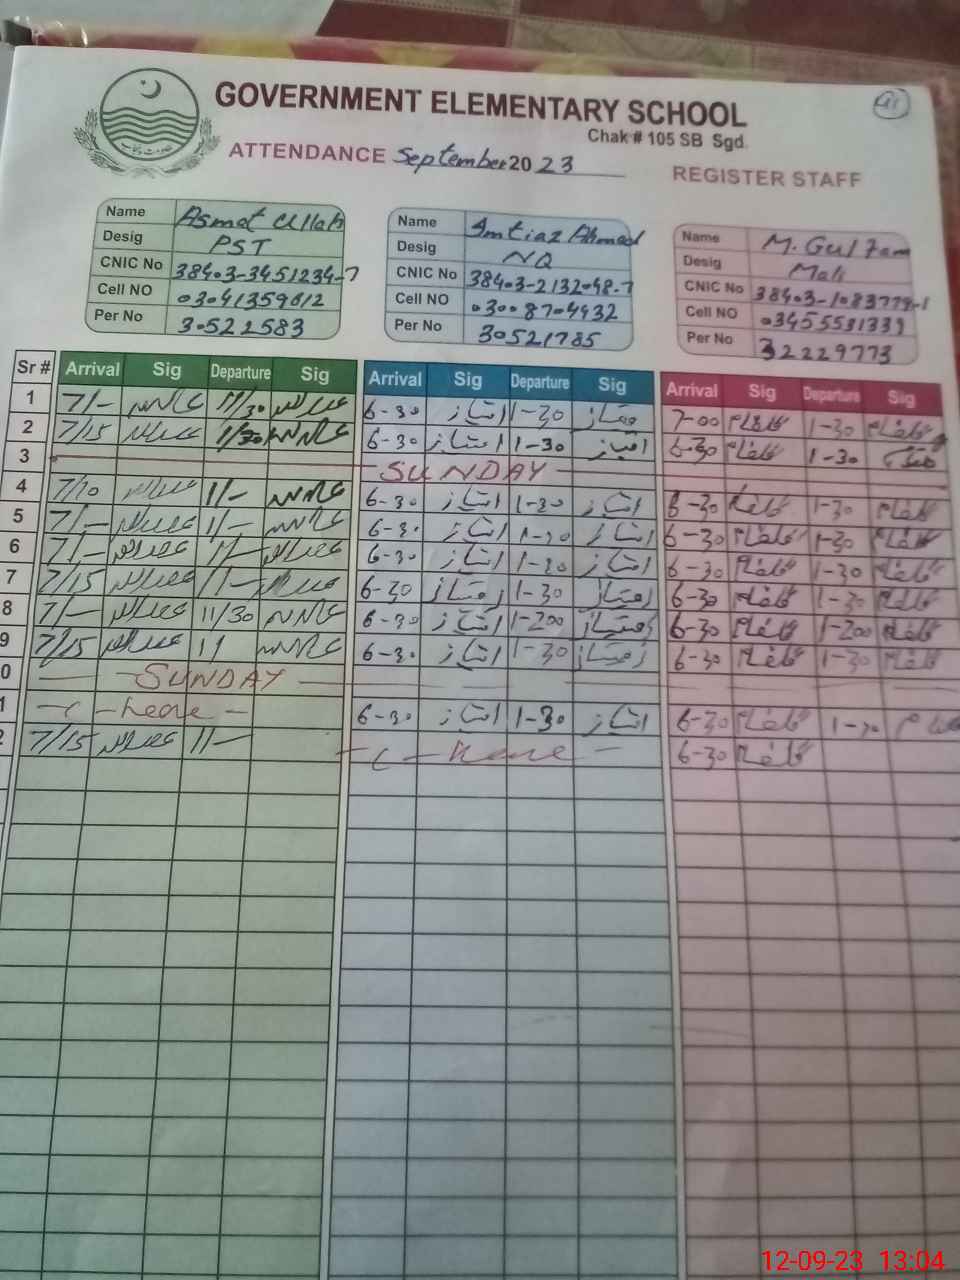 GOVERNMENT ELEMENTARY SCHOOL
Chak # 105 SB Sgd.
ATTENDANCE September 2023
REGISTER STAFF
Name Asmat Ullah
Desig PST
CNIC No 38403-3451234-7
Cell NO 03041359612
Per No 30522583
Name Imtiaz Ahmed
Desig NQ
CNIC No 38403-2132048-7
Cell NO 03008704932
Per No 30521785
Name M. Gulfam
Desig Mali
CNIC No
Cell NO 03455531339
Per No 32229773
Sr # Arrival Sig Departure Sig Arrival Sig Departure Sig Arrival Sig Departure Sig
1 7/- 11/30 6-30 امتیاز 1-30 7-00 گلفام 1-30 گلفام
2 7/15 1/30 6-30 امتیاز 1-30 امتیاز 6-30 گلفام 1-30
3 SUNDAY
4 7/10 1/- 6-30 امتیاز 1-30 امتیاز 6-30 گلفام 1-30 گلفام
5 7/- 1/- 6-30 امتیاز 1-30 امتیاز 6-30 گلفام 1-30 گلفام
6 7/- 1/- 6-30 امتیاز 1-30 امتیاز 6-30 گلفام 1-30 گلفام
7 7/15 1/- 6-30 امتیاز 1-30 امتیاز 6-30 گلفام 1-30 گلفام
8 7/- 11/30 6-30 امتیاز 1-200 امتیاز 6-30 گلفام 1-200 گلفام
9 7/15 1/ 6-30 امتیاز 1-30 امتیاز 6-30 گلفام 1-30 گلفام
0 SUNDAY
1 - C - leave - 6-30 امتیاز 1-30 امتیاز 6-30 گلفام 1-30
2 7/15 11- - C - leave - 6-30 گلفام
12-09-23 13:04